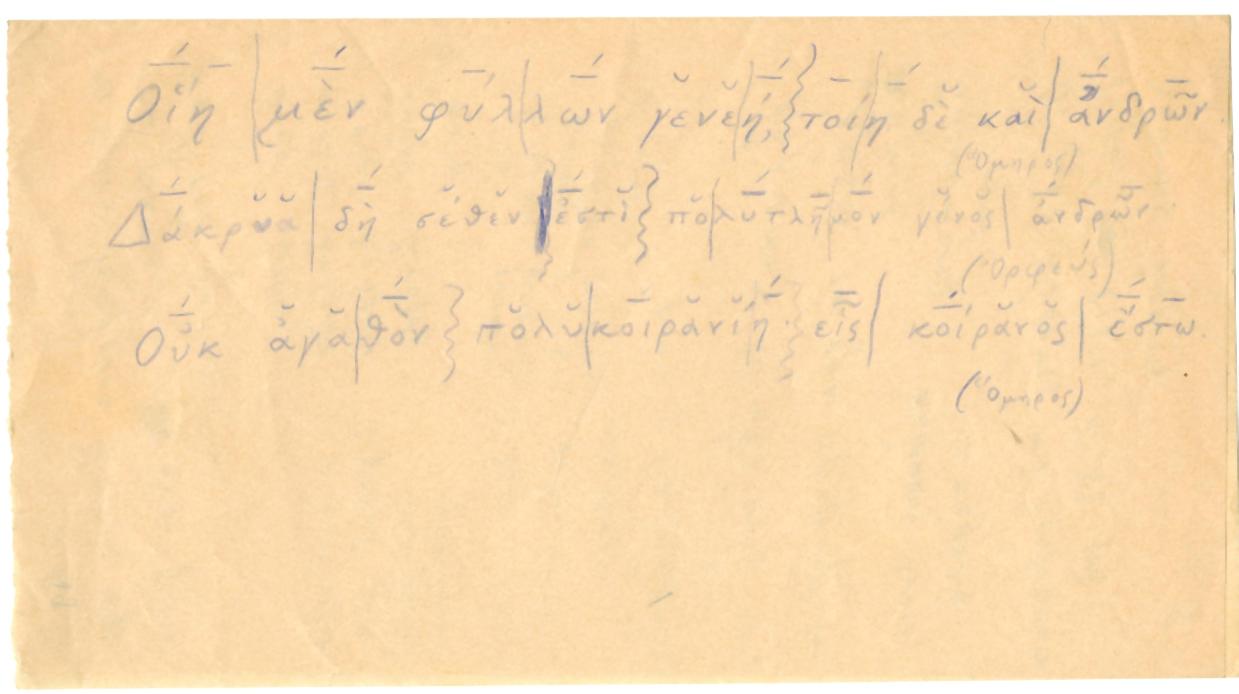 Οἵη μὲν φύλλων γενεή, τοίη δὲ καὶ ἀνδρῶν.
(Ὅμηρος)
Δάκρυα δὴ σέθεν ἐστὶ πολύτλημον γένος ἀνδρῶν.
(Ὀρφεύς)
Οὐκ ἀγαθὸν πολυκοιρανίη· εἷς κοίρανος ἔστω.
(Ὅμηρος)